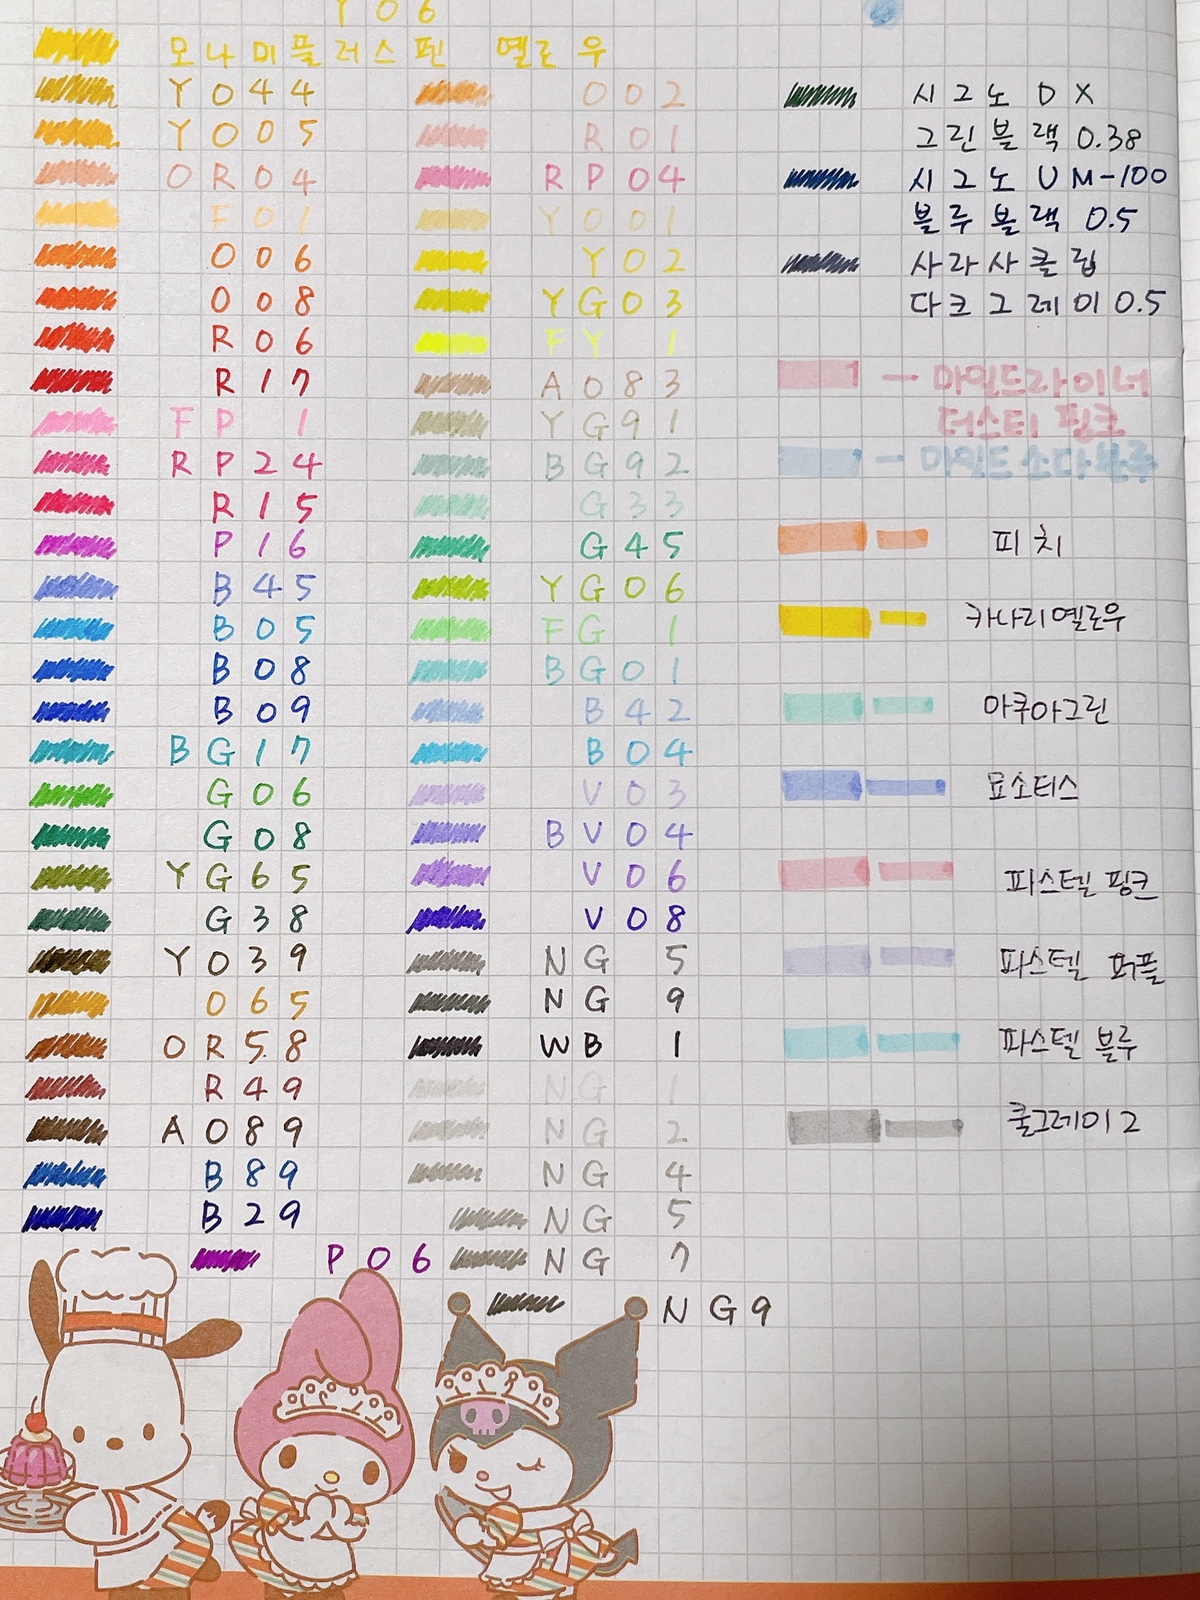 Y06
모나미플러스펜 옐로우
Y044
Y005
OR04
F01
006
008
R06
R17
FP 1
RP24
R15
P16
B45
B05
B08
B09
BG17
G06
G08
YG65
G38
Y039
065
OR58
R49
A089
B89
B29
P06
002
R01
RP04
Y001
Y02
YG03
FY 1
A083
YG91
BG92
G33
G45
YG06
FG 1
BG01
B42
B04
V03
BV04
V06
V08
NG 5
NG 9
WB 1
NG 1
NG 2
NG 4
NG 5
NG 7
NG9
시그노 DX
그린블랙 0.38
시그노 UM-100
블루블랙 0.5
사라사클립
다크그레이 0.5
- 마일드라이너
더스티 핑크
- 마일드 소다블루
피치
카나리옐로우
아쿠아그린
묘소티스
파스텔 핑크
파스텔 퍼플
파스텔 블루
쿨그레이 2